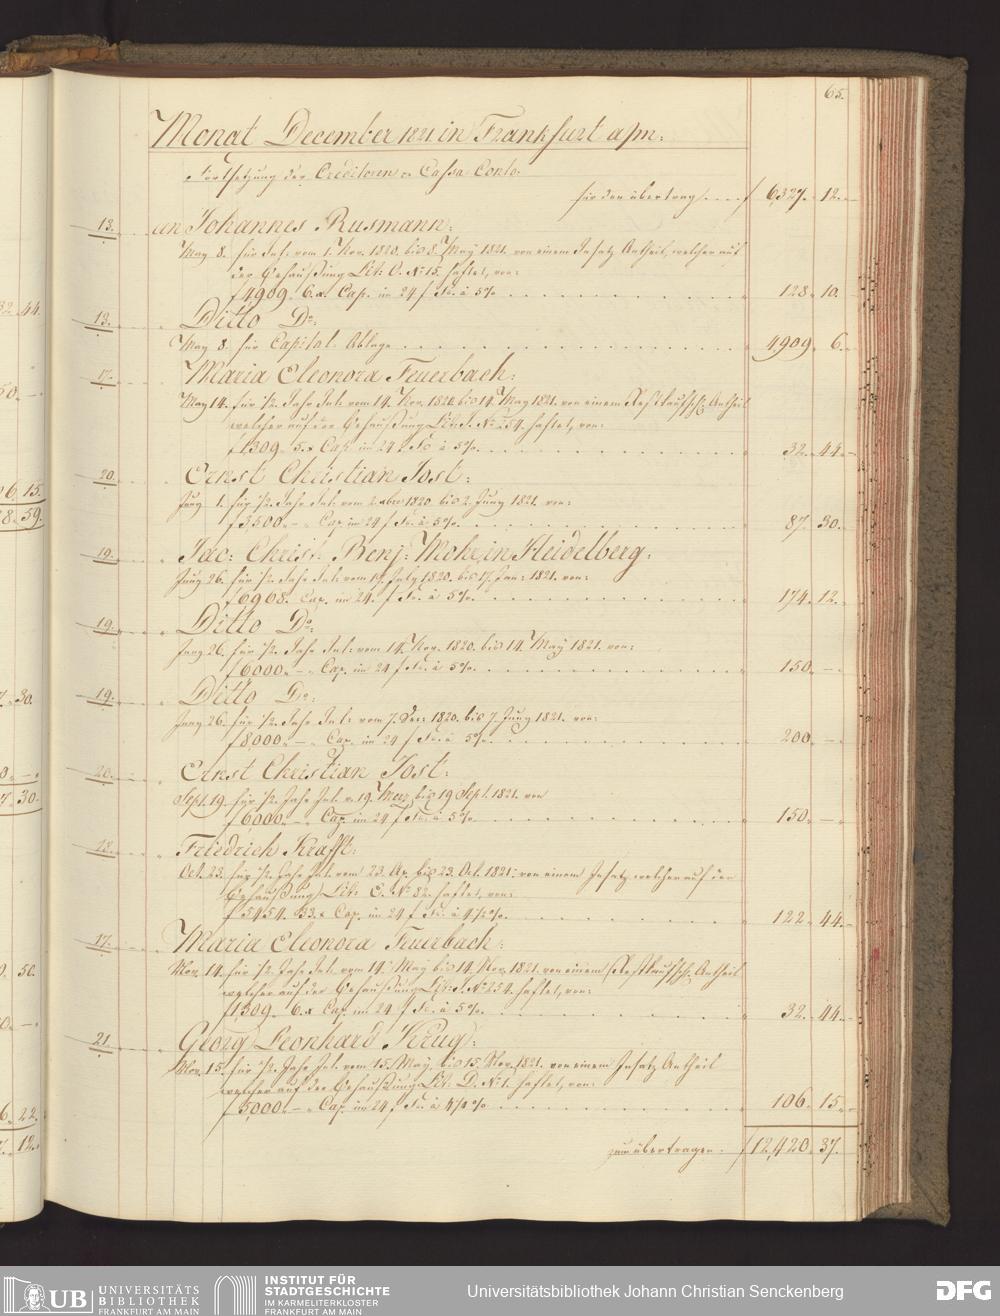 65.
Monat December 1821 in Frankfurt a/m:
Fortsetzung der Creditoren Cassa Conto.
für den übertrag . . . . f 6,327. 12.
13. an Johannes Rusmann:
May 8. für Int: vom 1. Nov. 1820. bis 8. May 1821. von einem Insatz Antheil, welcher auf
der Behaußung Lit: O. No 15. haftet, von:
f 4909. 6.x Cap. im 24 f Fs. à 5% . . . 128. 10.
13. Ditto Do:
May 8. für Capital Ablage . . . 4909. 6.
17. Maria Eleonora Feuerbach:
May 14. für 1/2 Jahr Int: vom 14. Nov. 1820 bis 14. May 1821. von einem Antheil
welcher auf der Behaußung Lit: J. No 254. haftet, von:
f 1309. 5.x Cap. im 24 f Fs. à 5% . . . 32. 44.
20. Ernst Christian Jost:
Juny 1. für 1/2 Jahr Int: vom 1820 bis 2. Juny 1821. von:
f 3,500.— Cap. im 24 f Fs. à 5% . . . 87. 30.
19. Jac: Christ: Benj: Mohr, in Heidelberg:
Juny 26. für 1/2 Jahr Int: vom 17. July 1820. bis 17. Jan: 1821. von:
f 6968. Cap. im 24. f Fs. à 5% . . . 174. 12.
19. Ditto Do:
Juny 26. für 1/2 Jahr Int: vom 14. Nov. 1820. bis 14. May 1821. von:
f 6000.— Cap. im 24 f Fs. à 5% . . . 150.—
19. Ditto Do:
Juny 26. für 1/2 Jahr Int: vom 7. Dec: 1820. bis 7. Juny 1821. von:
f 8,000.— Cap. im 24 f Fs. à 5% . . . 200.—
20. Ernst Christian Jost:
Sept. 19. für 1/2 Jahr Int. v. 19. Merz bis 19 Sept. 1821. von
f 6000.— Cap. im 24 f Fs. à 5% . . . 150.—
Friedrich Krafft:
Oct. 23. für 1/2 Jahr Int. vom 23. Ap. bis 23. Oct. 1821. von einem Insatz welcher auf der
Behaußung Lit: C. No 82. haftet, von:
f 5454. 33.x Cap. im 24 f Fs. à 4½%. . . . 122. 44.
17. Maria Eleonora Feuerbach:
Nov. 14. für 1/2 Jahr Int: vom 14. May bis 14. Nov. 1821. von einem Antheil
welcher auf der Behaußung Lit: J. No 254. haftet, von:
f 1309. 6.x Cap. im 24 f Fs. à 5% . . . 32. 44.
21. Georg Leonhard Krug:
Nov. 15. für 1/2 Jahr Int. vom 15. May. bis 15. Nov. 1821. von einem Insatz Antheil
welcher auf der Behaußung Lit: D. No 1. haftet, von:
f 5,000.— Cap. im 24 f Fs. à 4¼% . . . 106. 15.
zum übertragen. f 12,420. 37.
UB UNIVERSITÄTS
BIBLIOTHEK
FRANKFURT AM MAIN
INSTITUT FÜR
STADTGESCHICHTE
IM KARMELITERKLOSTER
FRANKFURT AM MAIN
Universitätsbibliothek Johann Christian Senckenberg
DFG